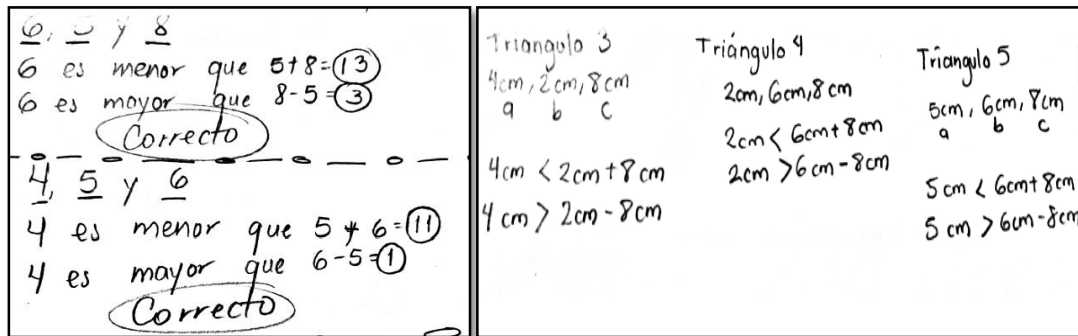 6, 5 y 8
6 es menor que 5+8=13
6 es mayor que 8-5=3
Correcto
4, 5 y 6
4 es menor que 5+6=11
4 es mayor que 6-5=1
Correcto
Triangulo 3
4cm, 2cm, 8cm
a b c
4cm < 2cm+8cm
4cm > 2cm-8cm
Triángulo 4
2cm, 6cm, 8cm
2cm < 6cm+8cm
2cm > 6cm-8cm
Triangulo 5
5cm, 6cm, 8cm
a b c
5cm < 6cm+8cm
5cm > 6cm-8cm